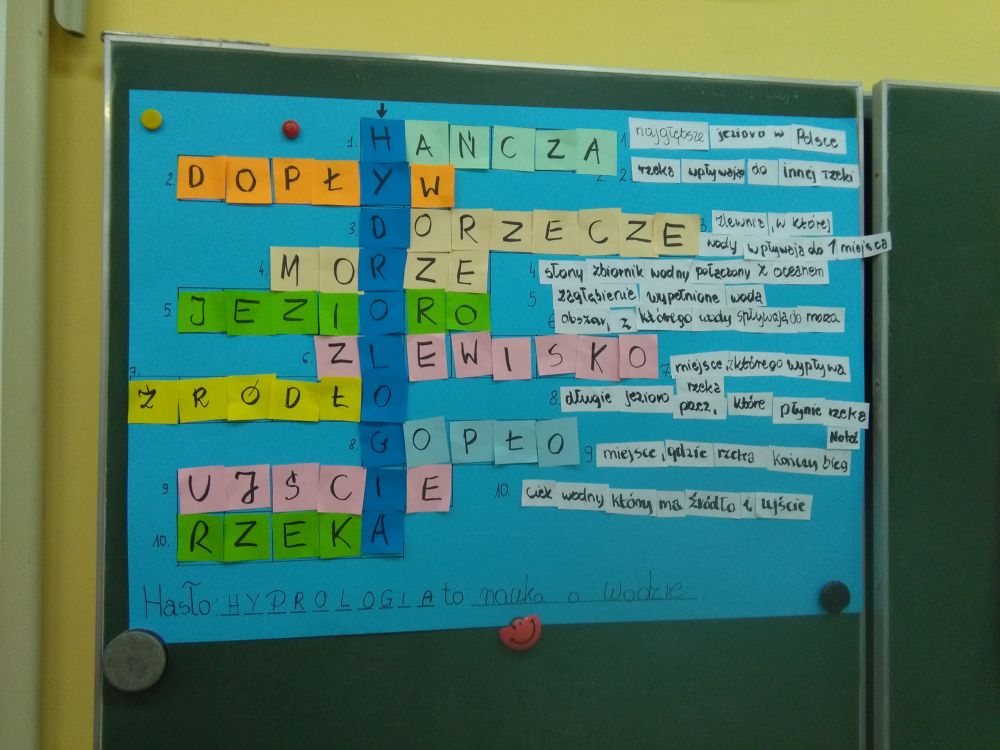 1. HAŃCZA 1. najgłębsze jezioro w Polsce
2. DOPŁYW 2. 2. rzeka wpływająca do innej rzeki
3. DORZECZE 3. zlewnia, w której
wody wpływają do 1 miejsca
4. MORZE 4. słony zbiornik wodny połączony z oceanem
5 JEZIORO 5 zagłębienie wypełnione wodą
6 obszar, z którego wody spływają do morza
6 ZLEWISKO 7 miejsce z którego wypływa
rzeka
7. ŹRÓDŁO 8. długie jezioro przez, które płynie rzeka
Noteć
8 GOPŁO 9 miejsce, gdzie rzeka kończy bieg
9. UJŚCIE 10 ciek wodny który ma źródło i ujście
10. RZEKA
Hasło: HYDROLOGIA to nauka o wodzie.